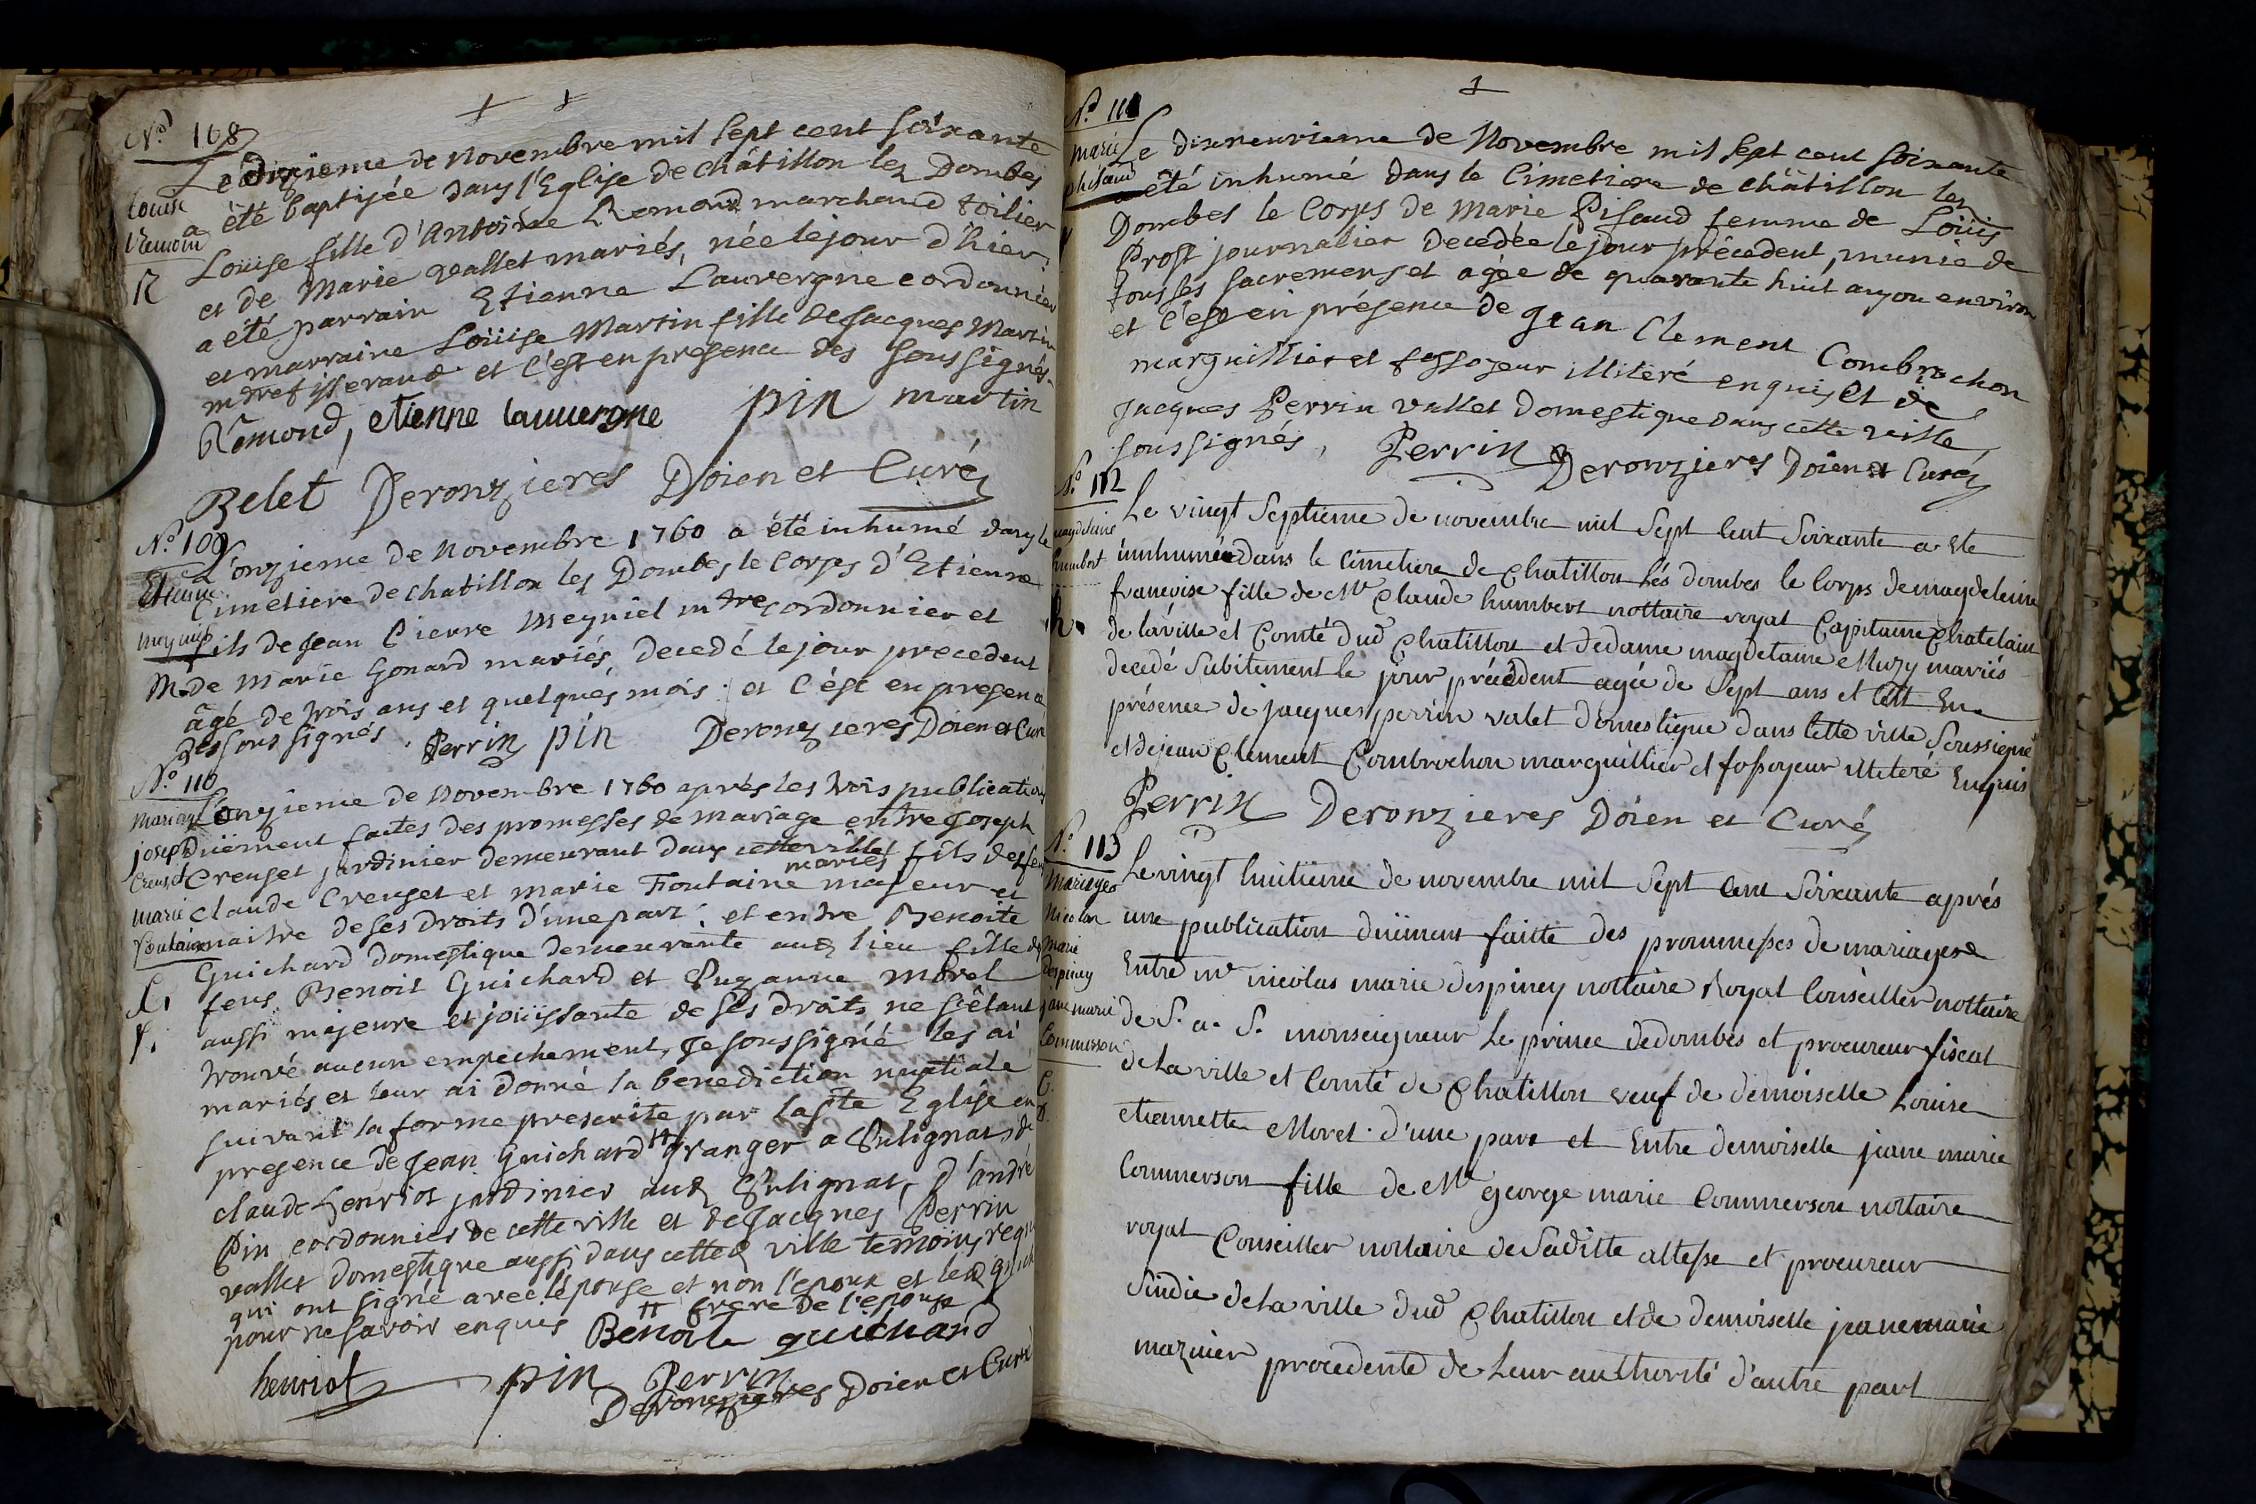 No 108
Louise
Remond
R
Le dixieme de Novembre mil sept cent soixante
a été baptisée dans l'Eglise de châtillon lez Dombes
Louise fille d'Antoine Remond marchand toilier
et de Marie vallet mariés, née le jour d'hier.
a été parrain Etienne Lauvergne cordonnier
et marraine Loüise Martin fille de Jacques Martin
mtre tisserand et c'est en presence des soussignés.
Rémond, etienne lauvergne pin martin
Belet Deronzieres Doien et Curé
No 109
Etienne
meyniel
M.
L'onzieme de Novembre 1760 a été inhumé dans le
Cimetiere de chatillon les Dombes le Corps d'Etienne
fils de Jean Pierre Meyniel mtre cordonnier et
de Marie Gonard mariés, decedé le jour precedent
âgé de trois ans et quelques mois. et c'est en presence
des soussignés. Perrin pin Deronzieres Doien et Curé
No 110
Mariage
joseph
Creuset
marie
fontaine
G.
L'onzieme de Novembre 1760 après les trois publications
düement faites des promesses de mariage entre Joseph
Creuset jardinier demeurant dans cette ville fils des feu
mariés
claude Creuset et Marie Fontaine majeur et
maitre de ses droits d'une part. et entre Benoite
Guichard domestique demeurante aud lieu fille des
feus Benoit Guichard et Suzanne Morel
aussi majeure et joüissante de ses droits ne s'étant
trouvé aucun empechement, Je soussigné les ai
mariés et leur ai donné la benediction nuptiale
suivant la forme prescrite par la ste Eglise en
presence de Jean Guichard # granger a Sulignat, de
claude henriot jardinier aud Sulignat, d'andré
Pin cordonnier de cette ville et de Jacques Perrin
vallet domestique aussi dans cette d ville temoins requis
qui ont signé avec l'épouse et non l'epoux et led guichard
pour ne savoir enquis # frere de l'epouse
Benoite guichard
henriot pin Perrin
Deronzieres Doien et Curé
No 111
marie
pisaud
Le dixneuvieme de Novembre mil sept cent soixante
a été inhumé dans le Cimetiere de châtillon lez
Dombes le Corps de Marie Pisaud femme de Loüis
Prost journalier decedée le jour précedent, munie de
tous ses sacremens et agée de quarante huit ans ou environ
et c'est en présence de Jean Clement Combrochon
marguillier et fossoyeur illiteré enquis et de
Jacques Perrin vallet domestique dans cette ville
soussignés, Perrin Deronzieres Doien et Curé
No 112
magdeleine
humbert
h.
Le vingt Septieme de novembre mil Sept Cent Soixante a Eté
innhumée dans le Cimetiere de Chatillon Lés dombes le Corps de magdeleine
françoise fille de Mr Claude humbert nottaire royal Capitaine Chatelain
de la ville et Comté dud Chatillon et de dame magdelaine Muzy mariés
decedé Subitement le jour précédent agée de Sept ans et C'est En
présence de jacques perrin valet domestique dans Cette ville Soussigné
et de jean Clement Combrochon marguillier et fossoyeur illiteré Enquis
Perrin Deronzieres Doien et Curé
No 113
Mariage
Nicolas
marie
Despiney
jane marie
Commerson
C.
D.
Le vingt huitieme de novembre mil Sept Cent Soixante aprés
une publication düiment faitte des prommesses de mariage
Entre mr nicolas marie despiney nottaire Royal Conseiller nottaire
de S. a. S. monseigneur Le prince de dombes et procureur fiscal
de La ville et Comté de Chatillon veuf de demoiselle Louise
etiennette Moret d'une part et Entre demoiselle jeane marie
Commerson fille de Mr george marie Commerson nottaire
royal Conseiller nottaire de Saditte altesse et procureur
Sindic de La ville dud Chatillon et de demoiselle jeane marie
mazuier procedente de Leur authorité d'autre part